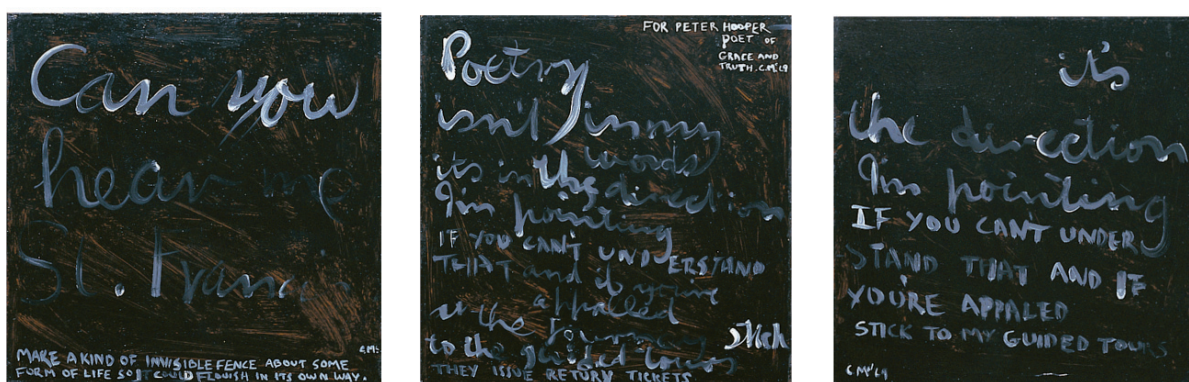 Can you
hear me
St. Francis
MAKE A KIND OF INVISIBLE FENCE ABOUT SOME
FORM OF LIFE SO IT COULD FLOUISH IN ITS OWN WAY.
FOR PETER HOOPER
POET OF
GRACE AND
TRUTH. C.M'69
Poetry
isn't in my
words
its in the direction
I'm pointing
IF YOU CAN'T UNDERSTAND
THAT and if you're
appalled
at the journey
stick
to the guided tours
THEY ISSUE RETURN TICKETS
it's
the direction
I'm pointing
IF YOU CAN'T UNDER
STAND THAT AND IF
YOU'RE APPALED
STICK TO MY GUIDED TOURS
C M'69